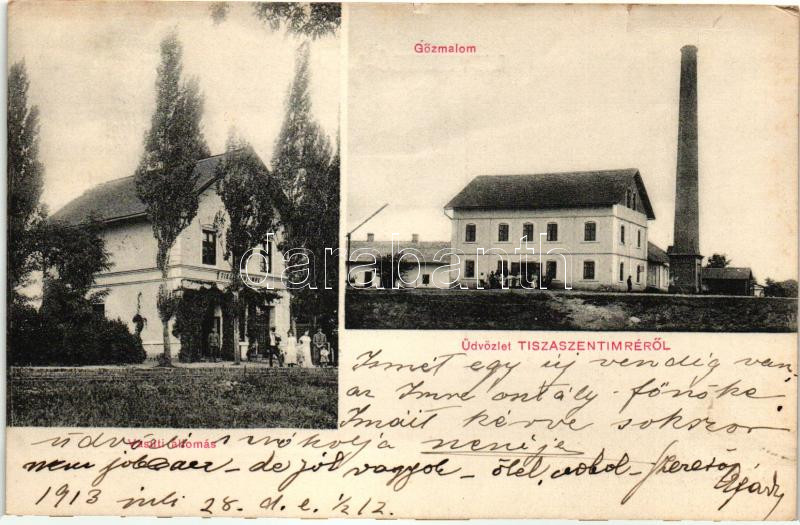 Gőzmalom
TISZASZENTIMRE
darabanth.com
Üdvözlet TISZASZENTIMRÉRŐL
Ismét egy új vendég van
az Imre osztály-főnöke
Imáit kérve sokszor
Vasúti állomás
üdvözli s csókolja nenije
nem - de jól vagyok - ölel, szerető
1913 juli 28. d. e. ½ 12.